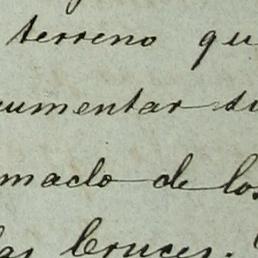 terreno qu
umentar su
mado de los
las Cruces.